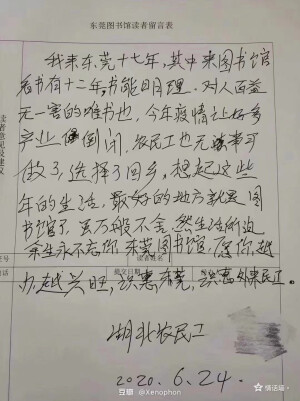 东莞图书馆读者留言表
读者意见及建议
我来东莞十七年,其中来图书馆
看书有十二年,书能明理,对人百益
无一害的唯书也,今年疫情让好多
产业倒闭,农民工也无事可
做了,选择了回乡,想起这些
年的生活,最好的地方就是图
书馆了,虽万般不舍,然生活所迫,
余生永不忘你,东莞图书馆,愿你越
办越兴旺,识惠东莞,识惠外来民工。
读者姓名
提交日期
湖北农民工
2020.6.24.
豆瓣 @Xenophon